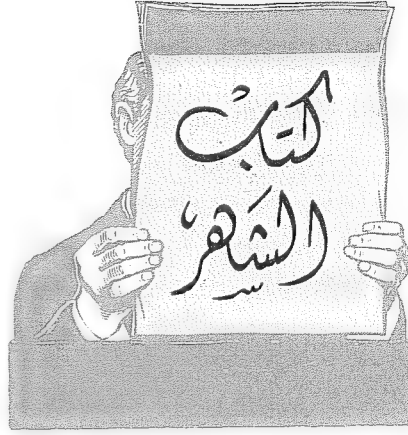 كتاب
الشهر